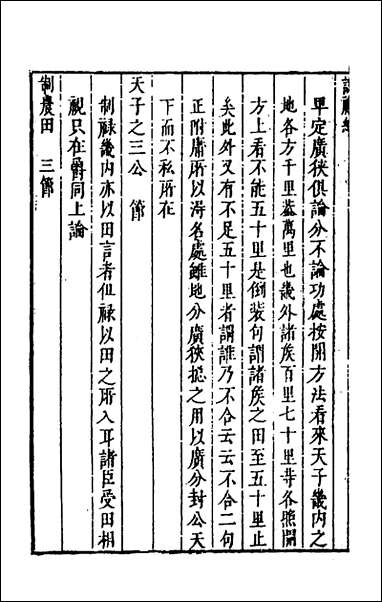 早定廣狹俱論分不論功處按開方法看來天子畿内之
地各方千里葢萬里也畿外諸矦百里七十里等各照開
方上看不能五十里是倒裝句謂諸矦之田至五十里止
矣此外又有不足五十里者謂誰乃不合云云不合二句
正附庸所以得名處雖地分廣狹揔之用以廣分封公天
下而不私所在
天子之三公 節
制祿畿内亦以田言者但祿以田之所入耳諸臣受田相
視只在爵同上論
制農田 三節